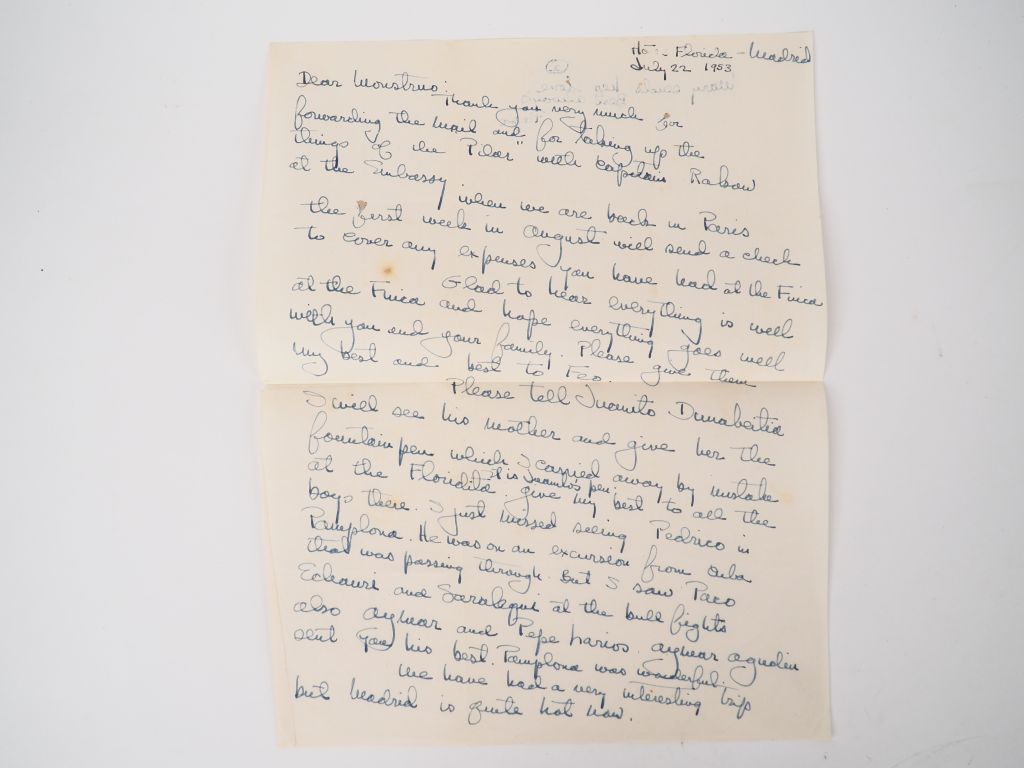 Hotel Florida - Madrid
July 22 1953
Dear Monstruo:
Thank you very much for
forwarding the mail and for taking up the
things of the Pilar" with Capitain Raban
at the Embassy when we are back in Paris
the first week in August will send a check
to cover any expenses you have had at the Finca
Glad to hear everything is well
at the Finca and hope everything goes well
with you and your family. Please give them
my best and best to Feo.
Please tell Juanito Dunabeitia
I will see his mother and give her the
fountain pen which I carried away by mistake
it is Juanito's pen.
at the Floridita. give my best to all the
boys there. I just missed seeing Pedrico in
Pamplona. He was on an excursion from Cuba
that was passing through. But I saw Paco
Echauri and Saralegui at the bull fights
also aymar and Pepe Larios. aymar
sent you his best. Pamplona was wonderful.
We have had a very interesting trip
but Madrid is quite hot now.